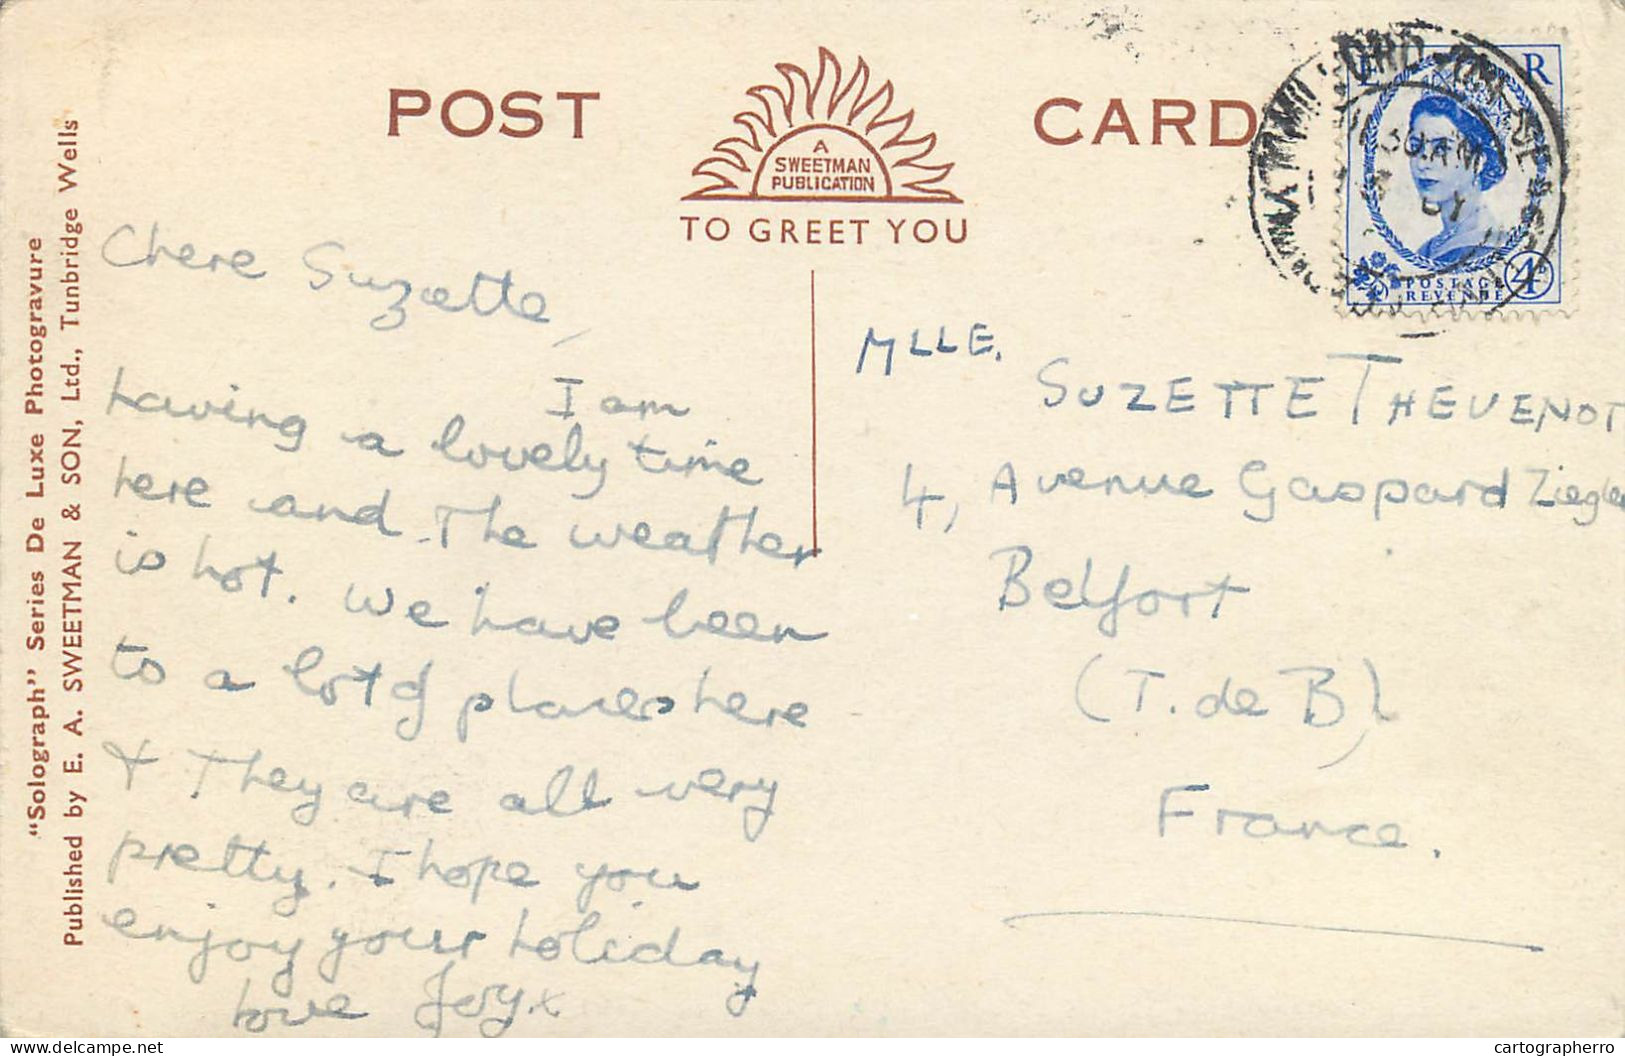 POST CARD
A
SWEETMAN
PUBLICATION
TO GREET YOU
"Solograph" Series De Luxe Photogravure
Published by E. A. SWEETMAN & SON, Ltd., Tunbridge Wells
Chere Suzette,
I am
having a lovely time
here and The weather
is hot. We have been
to a lot of places here
+ They are all very
pretty. I hope you
enjoy your holiday
love Joy.x
R
POSTAGE
REVENUE
4D
30 AM
MLLE.
SUZETTE THEVENOT
4, Avenue Gaspard Ziegler
Belfort
(T. de B)
France.
delcampe.net
cartographerro